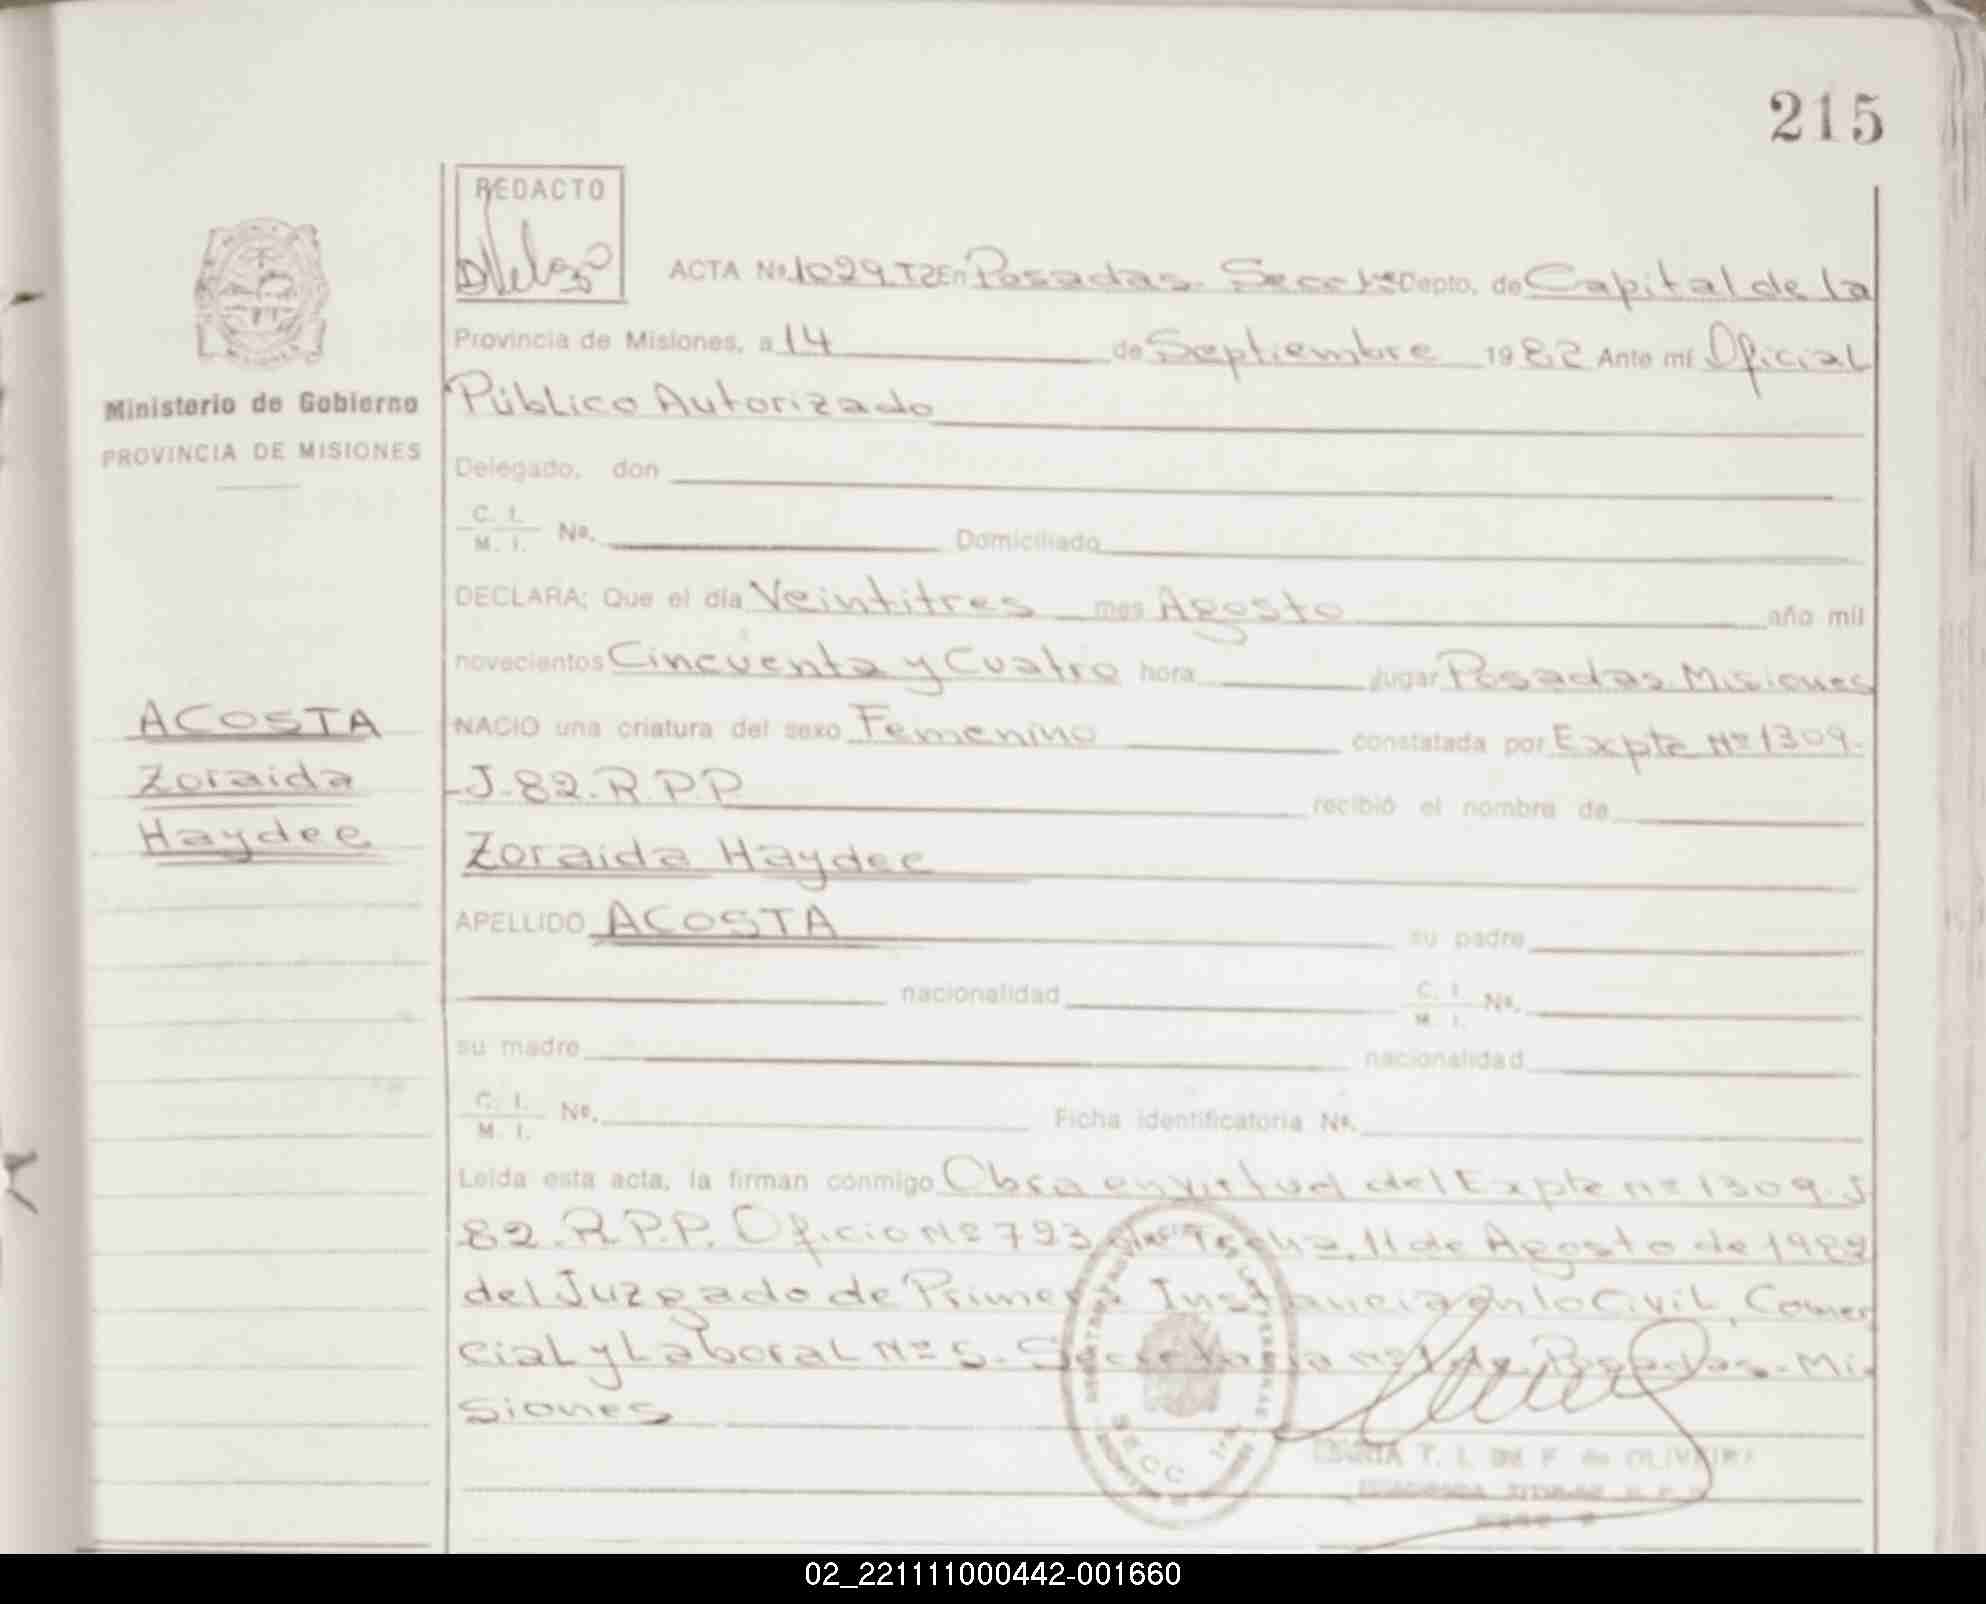 215
REDACTO
ACTA Nº 1029.T2 En Posadas Secc 1ª Depto. de Capital de la
Provincia de Misiones, a 14 de Septiembre 1982 Ante mí Oficial
Público Autorizado
Ministerio de Gobierno
PROVINCIA DE MISIONES
Delegado, don
C. I.
M. I. Nº. Domiciliado
DECLARA; Que el día Veintitres mes Agosto año mil
novecientos Cincuenta y Cuatro hora lugar Posadas Misiones
ACOSTA
Zoraida
Haydee
NACIO una criatura del sexo Femenino constatada por Expte Nº 1309.
-J-82.R.P.P recibió el nombre de
Zoraida Haydee
APELLIDO ACOSTA su padre
nacionalidad C. I.
M. I. Nº.
su madre nacionalidad
C. I.
M. I. Nº. Ficha identificatoria Nº.
Leída esta acta, la firman conmigo Obra en virtud del Expte nº 1309.J
82.R.P.P. Oficio Nº 793 Fecha, 11 de Agosto de 1982
del Juzgado de Primera Instancia en lo Civil, Comer
cial y Laboral Nº 5. Secretaria nº 1 de Posadas-Mi-
siones
SECC 1ra
T. I. DE OLIVEIRA
02_221111000442-001660